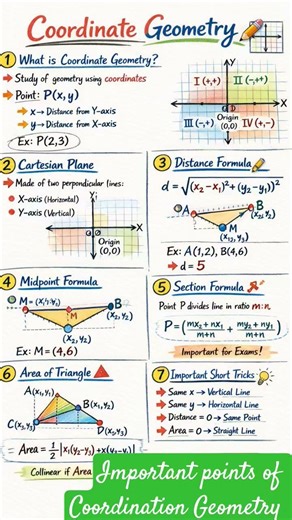 Coordinate Geometry
1 What is Coordinate Geometry?
Study of geometry using coordinates
Point: P(x, y)
x → Distance from Y-axis
y → Distance from X-axis
Ex: P(2,3)
Y
I (+,+)
II (-,++)
X
Origin
(0,0)
III (-,+)
IV (+,-)
2 Cartesian Plane
Made of two perpendicular lines:
X-axis (Horizontal)
Y-axis (Vertical)
X
Origin
(0,0)
3 Distance Formula
d = √(x₂ - x₁)² + (y₂ - y₁)²
A
B
(x₂, y₂)
M
Ex: A(1,2), B(4,6)
→ d = 5
4 Midpoint Formula
M =
M
B
(x₂, y₂)
(x₂, y₂)
Ex: M = (4,6)
5 Section Formula
Point P divides line in ratio m:n.
P = (mx₂ + nx₁ / m+n + my₂ + ny₁ / m+n)
Important for Exams!
6 Area of Triangle
A(x₁, y₁)
B(x₂, y₂)
Area = 1/2
Collinear if Area
7 Important Short Tricks
Same x → Vertical Line
Same y → Horizontal Line
Distance = 0 → Same Point
Area = 0 → Straight Line
Important points of
Coordination Geometry